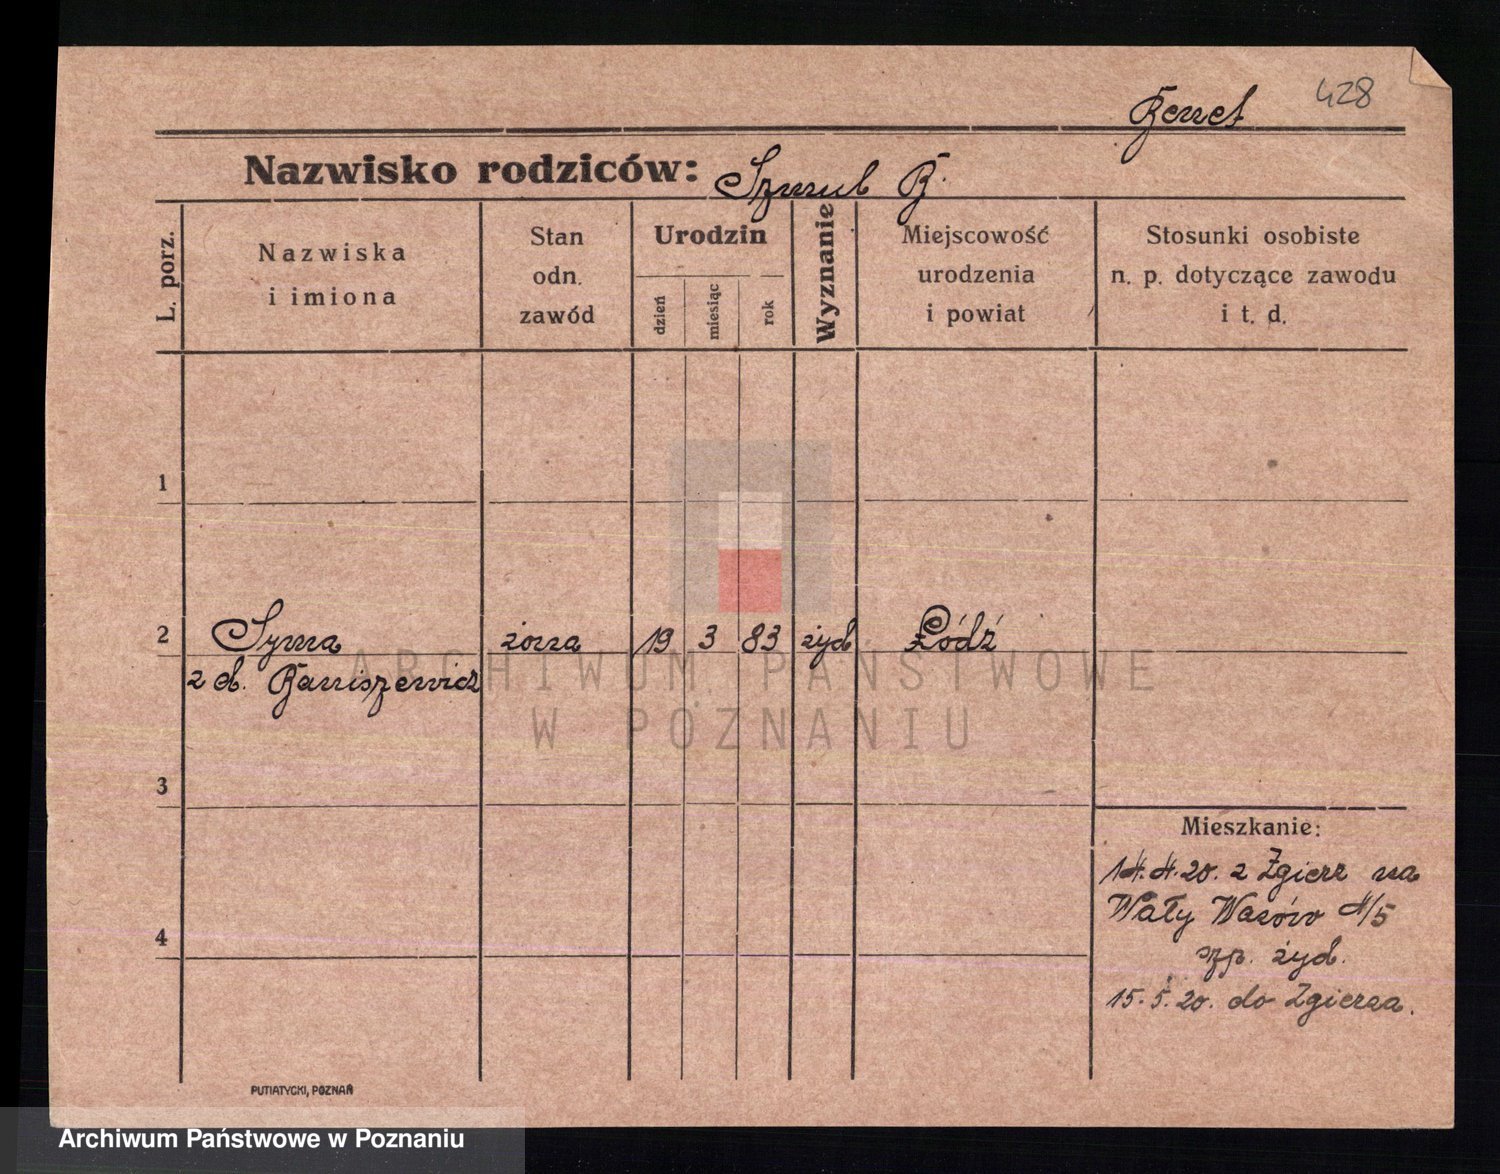 428
Berret
Nazwisko rodziców: Szmul B.
L. porz.
Nazwiska
i imiona
Stan
odn.
zawód
Urodzin
dzień
miesiąc
rok
Wyznanie
Miejscowość
urodzenia
i powiat
Stosunki osobiste
n. p. dotyczące zawodu
i t. d.
1
2 Syma żona 19 3 83 żyd Łódź
z d. Baniszewicz
ARCHIWUM PAŃSTWOWE
W POZNANIU
3
Mieszkanie:
14.4.20. z Zgierz na
Wały Wazów 4/5
szp. żyd.
4
15.5.20. do Zgierza.
PUTIATYCKI, POZNAŃ
Archiwum Państwowe w Poznaniu